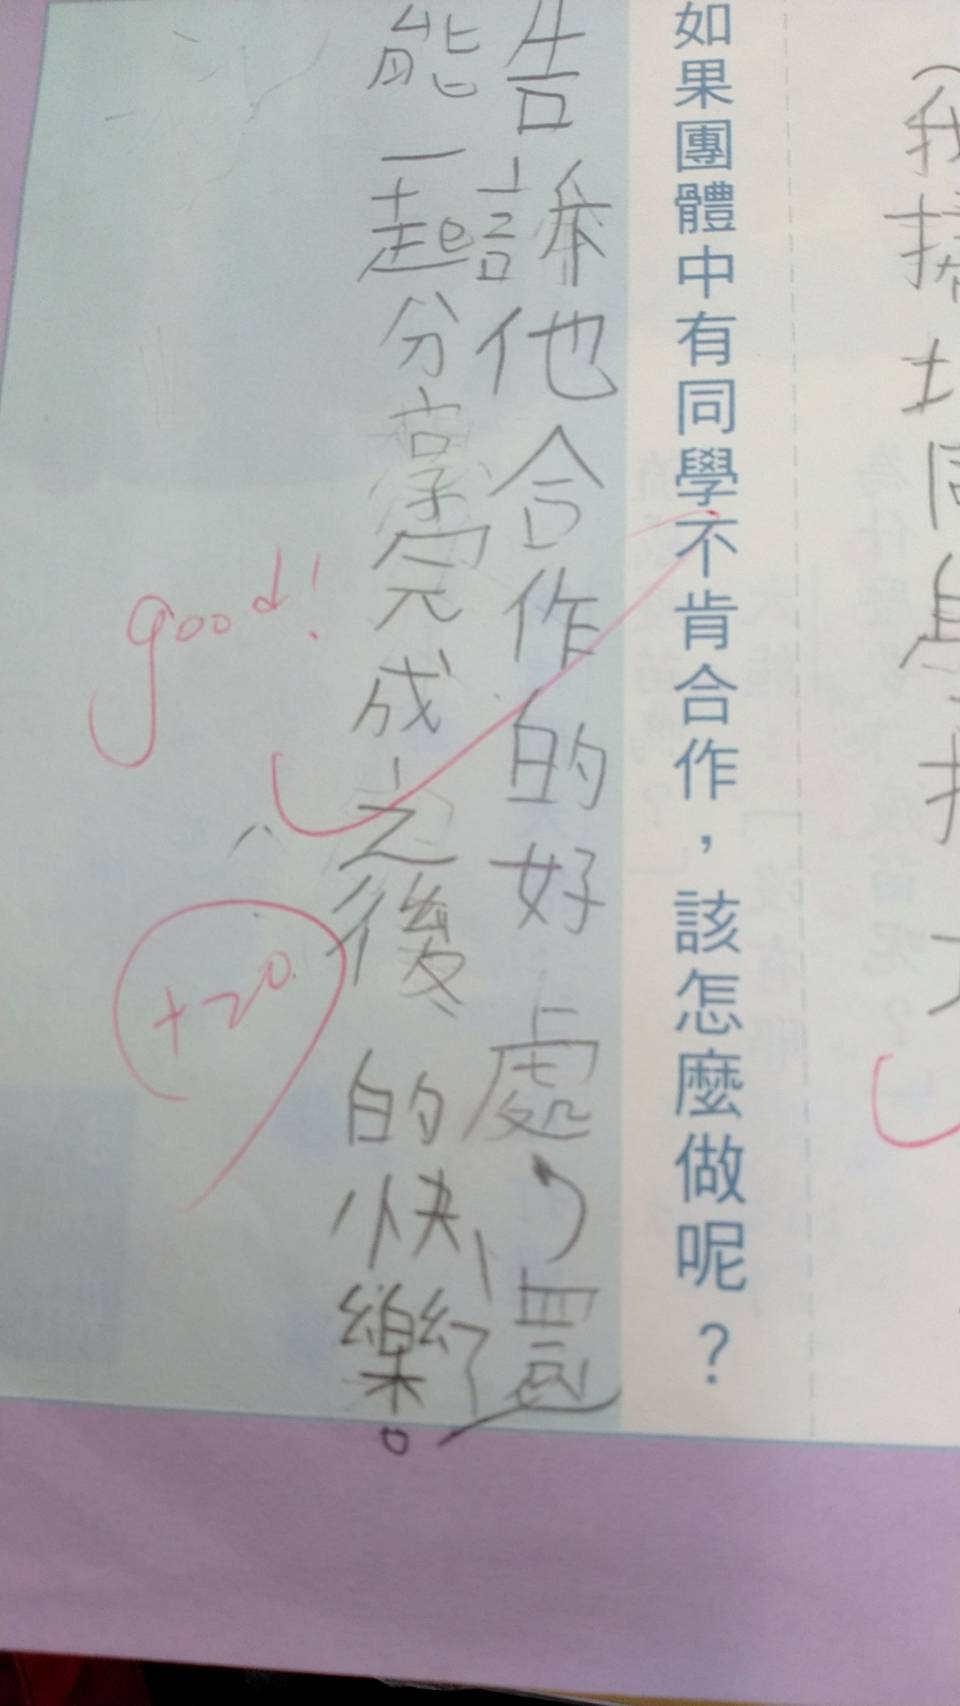 如果團體中有同學不肯合作，該怎麼做呢？
告訴他合作的好處，還
能一起分享完成之後的快樂。
good!
+20